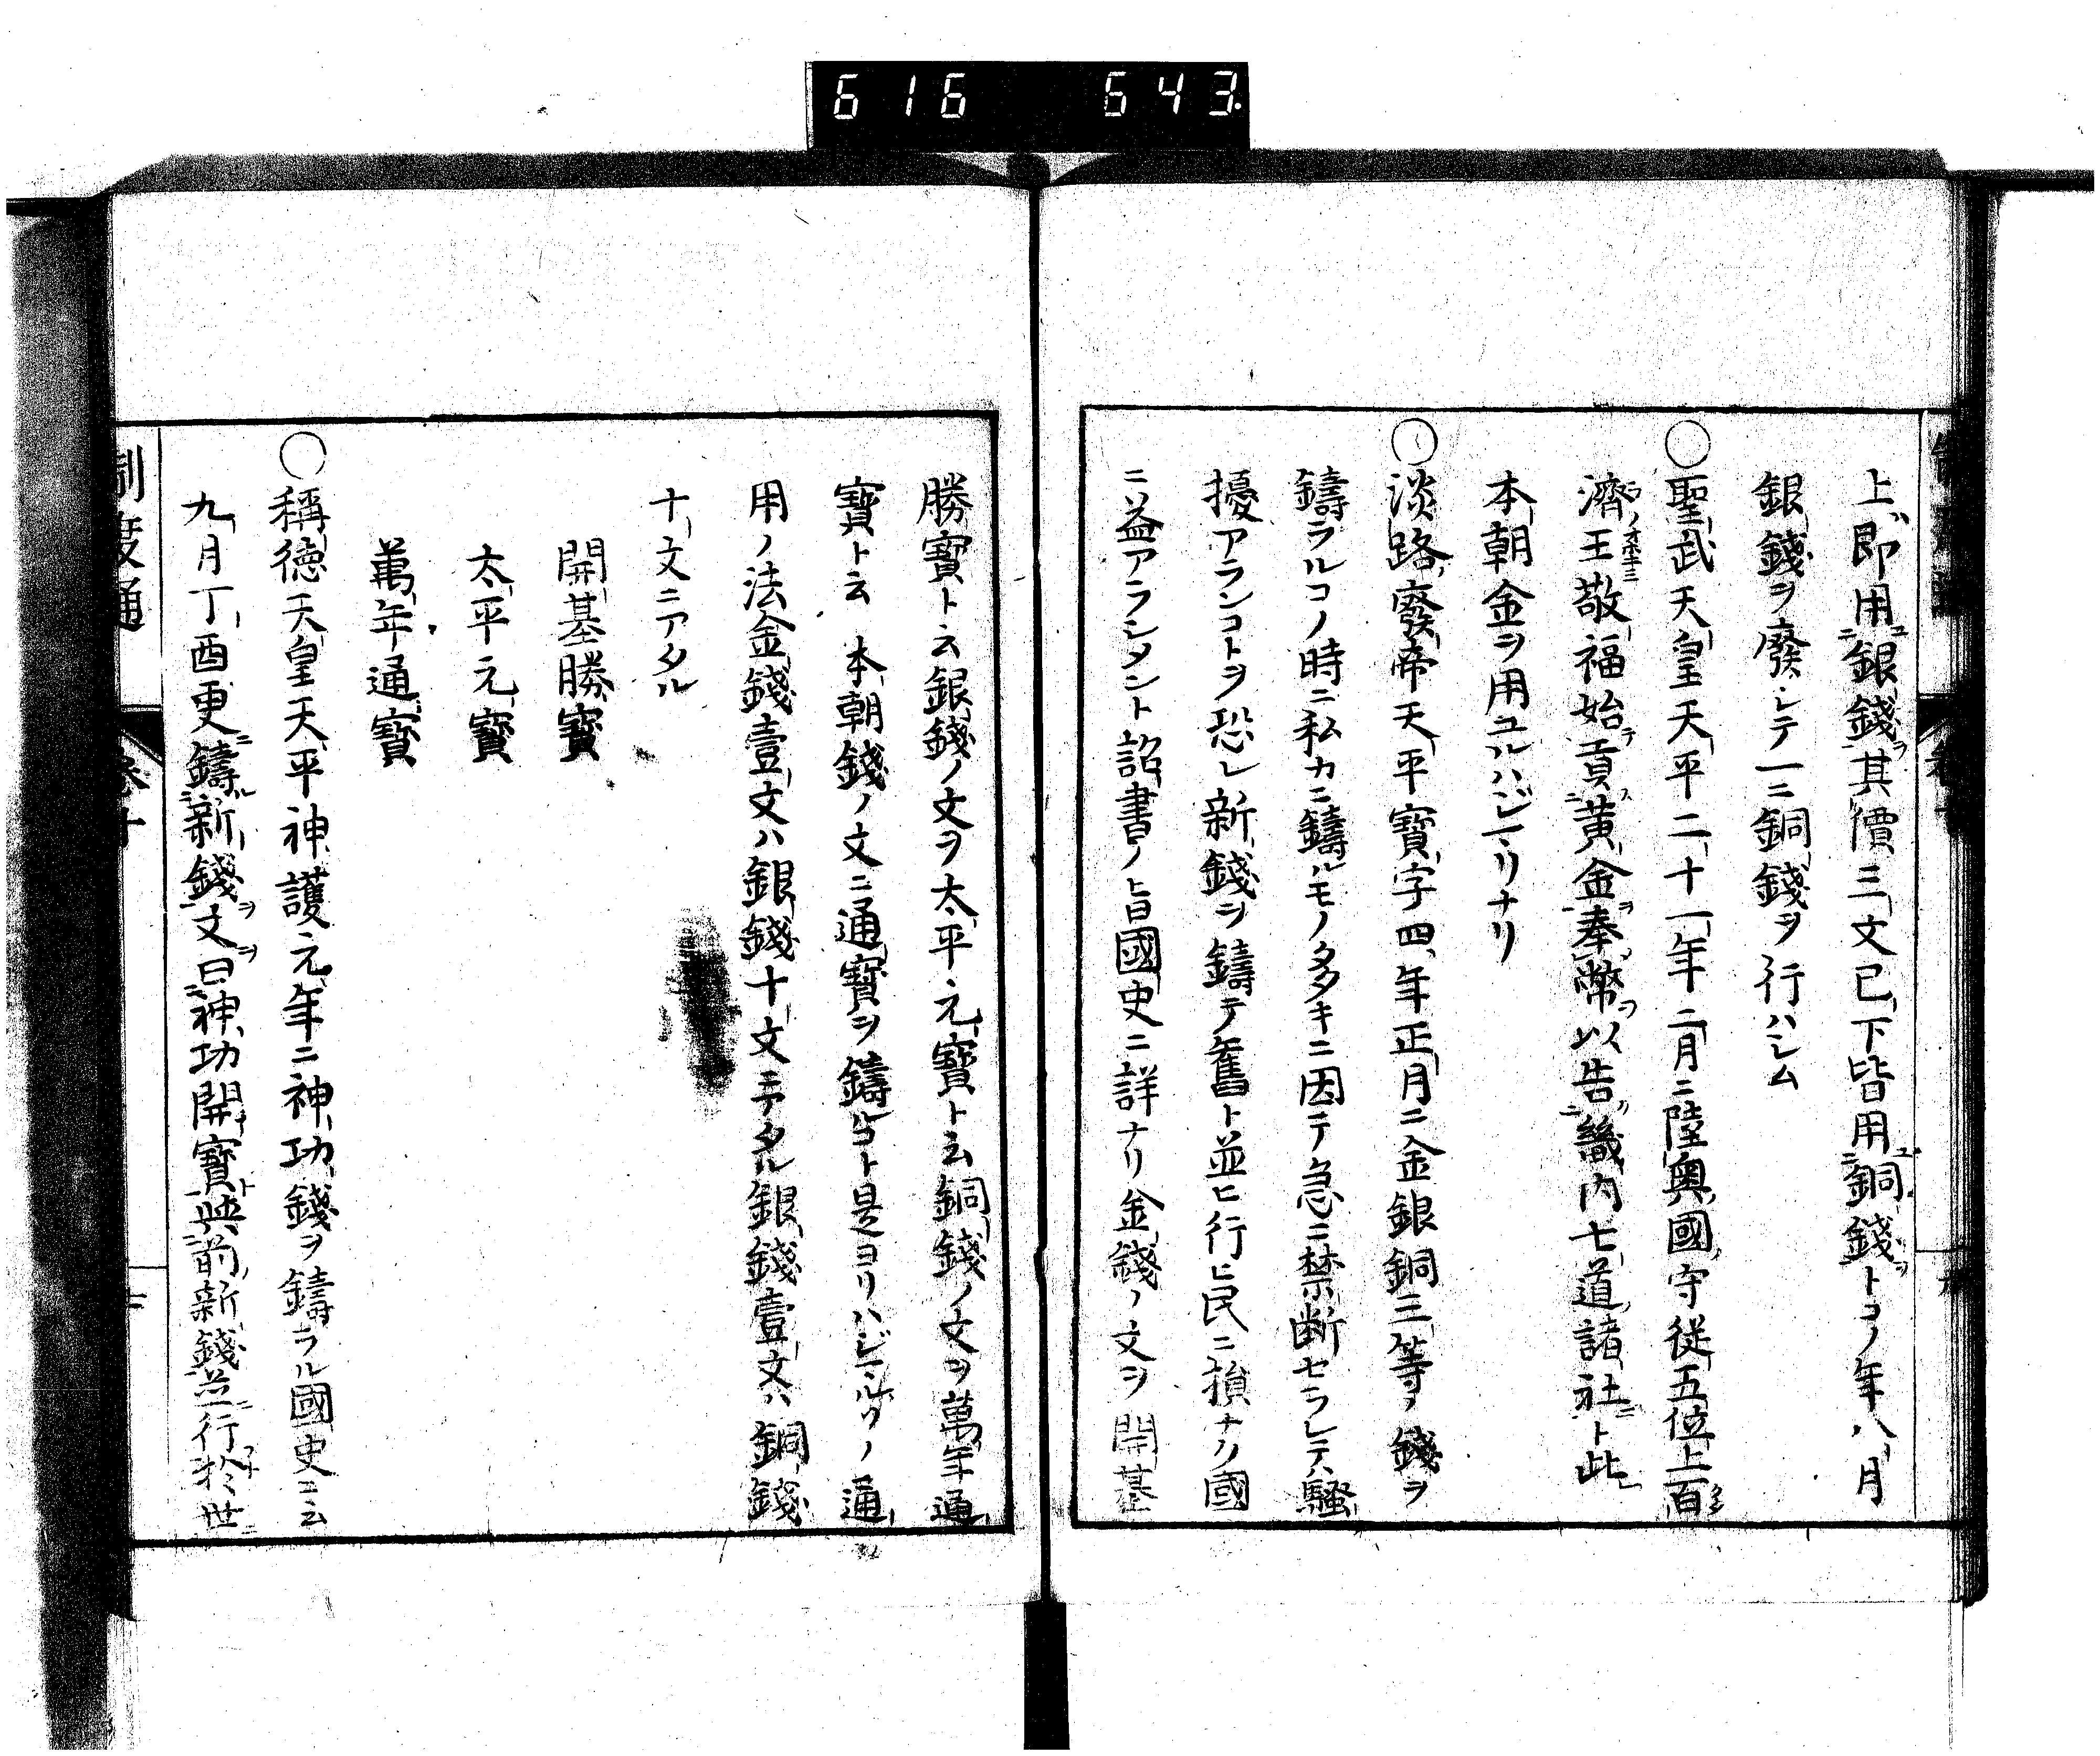 616 643
上即用銀錢其價三文已下皆用銅錢トコノ年八月
銀錢ヲ廢シテ一ニ銅錢ヲ行ハシム
〇聖武天皇天平二十一年二月ニ陸奥國守從五位上百
濟王敬福始貢黄金奉幣以告畿内七道諸社ト此
本朝金ヲ用ユルハジマリナリ
〇淡路廢帝天平寶字四年正月ニ金銀銅三等ノ錢ヲ
鑄ラルコノ時ニ私カニ鑄ルモノ多キニ因テ急ニ禁断セラレテハ騷
擾アランコトヲ恐レ新錢ヲ鑄テ舊ト並ヒ行ヒ民ニ損ナク國
ニ益アラシメント詔書ノ旨國史ニ詳ナリ金錢ノ文ヲ開基
勝寶ト云銀錢ノ文ヲ太平元寶ト云銅錢ノ文ヲ萬年通
寶ト云 本朝錢ノ文ニ通寶ヲ鑄ルコト是ヨリハジマルソノ通
用ノ法金錢壹文ハ銀錢十文ニアタル銀錢壹文ハ銅錢
十文ニアタル
開基勝寶
太平元寶
萬年通寶
〇稱徳天皇天平神護元年ニ神功錢ヲ鑄ラル國史ニ云
九月丁酉更鑄新錢文曰神功開寶與前新錢並行於世
制度通 卷十